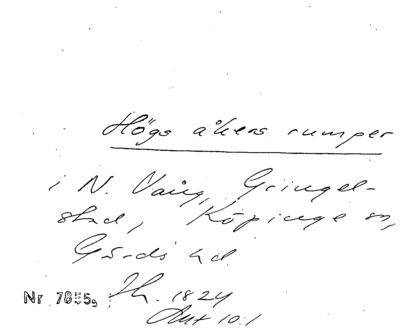 Högs åkers rumper
i N. Vång, Gringel-
stad, Köpinge sn,
Gärds hd
Nr 7885, Sk. 1824
Akt 10.1